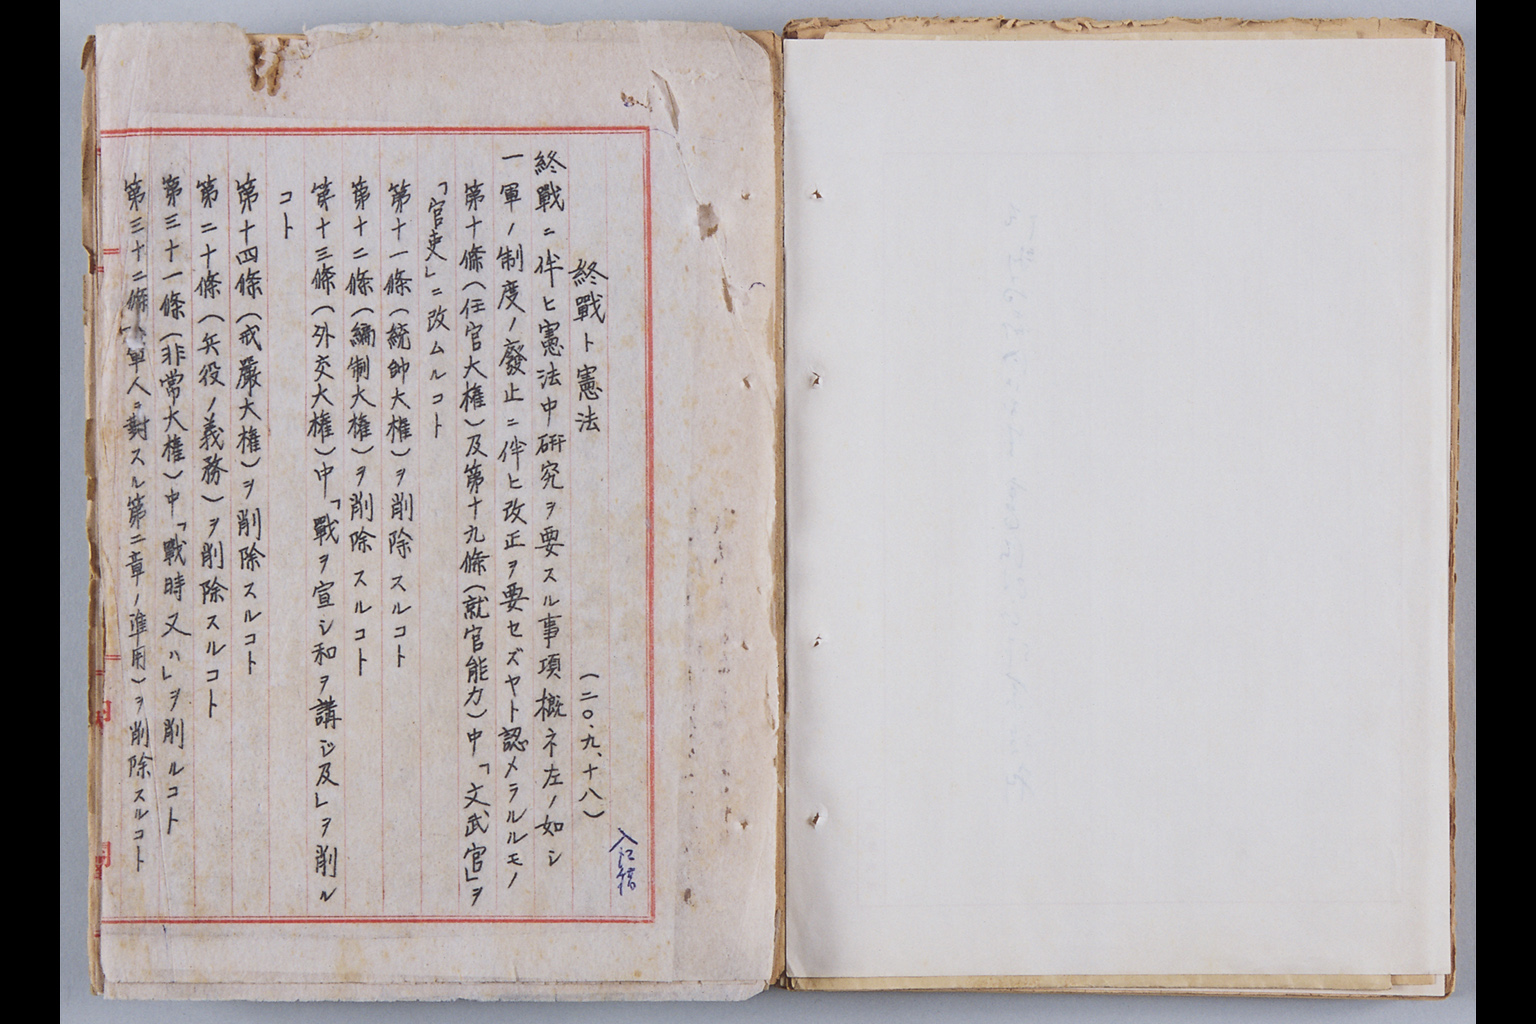 入江稿
終戰ト憲法　（二〇、九、十八）
終戰ニ伴ヒ憲法中研究ヲ要スル事項概ネ左ノ如シ
一　軍ノ制度ノ廢止ニ伴ヒ改正ヲ要セズヤト認メラルルモノ
第十條（任官大權）及第十九條（就官能力）中「文武官」ヲ
「官吏」ニ改ムルコト
第十一條（統帥大權）ヲ削除スルコト
第十二條（編制大權）ヲ削除スルコト
第十三條（外交大權）中「戰ヲ宣シ和ヲ講ジ及」ヲ削ル
コト
第十四條（戒嚴大權）ヲ削除スルコト
第二十條（兵役ノ義務）ヲ削除スルコト
第三十一條（非常大權）中「戰時又ハ」ヲ削ルコト
第三十二條（軍人ニ對スル第二章ノ準用）ヲ削除スルコト